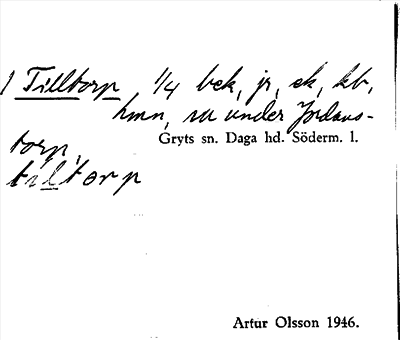 1 Tilltorp 1/4 bek, jr, sk, kb,
hmn, su under Jordans-
Gryts sn. Daga hd. Söderm. l.
torp,
tiltorp
Artur Olsson 1946.